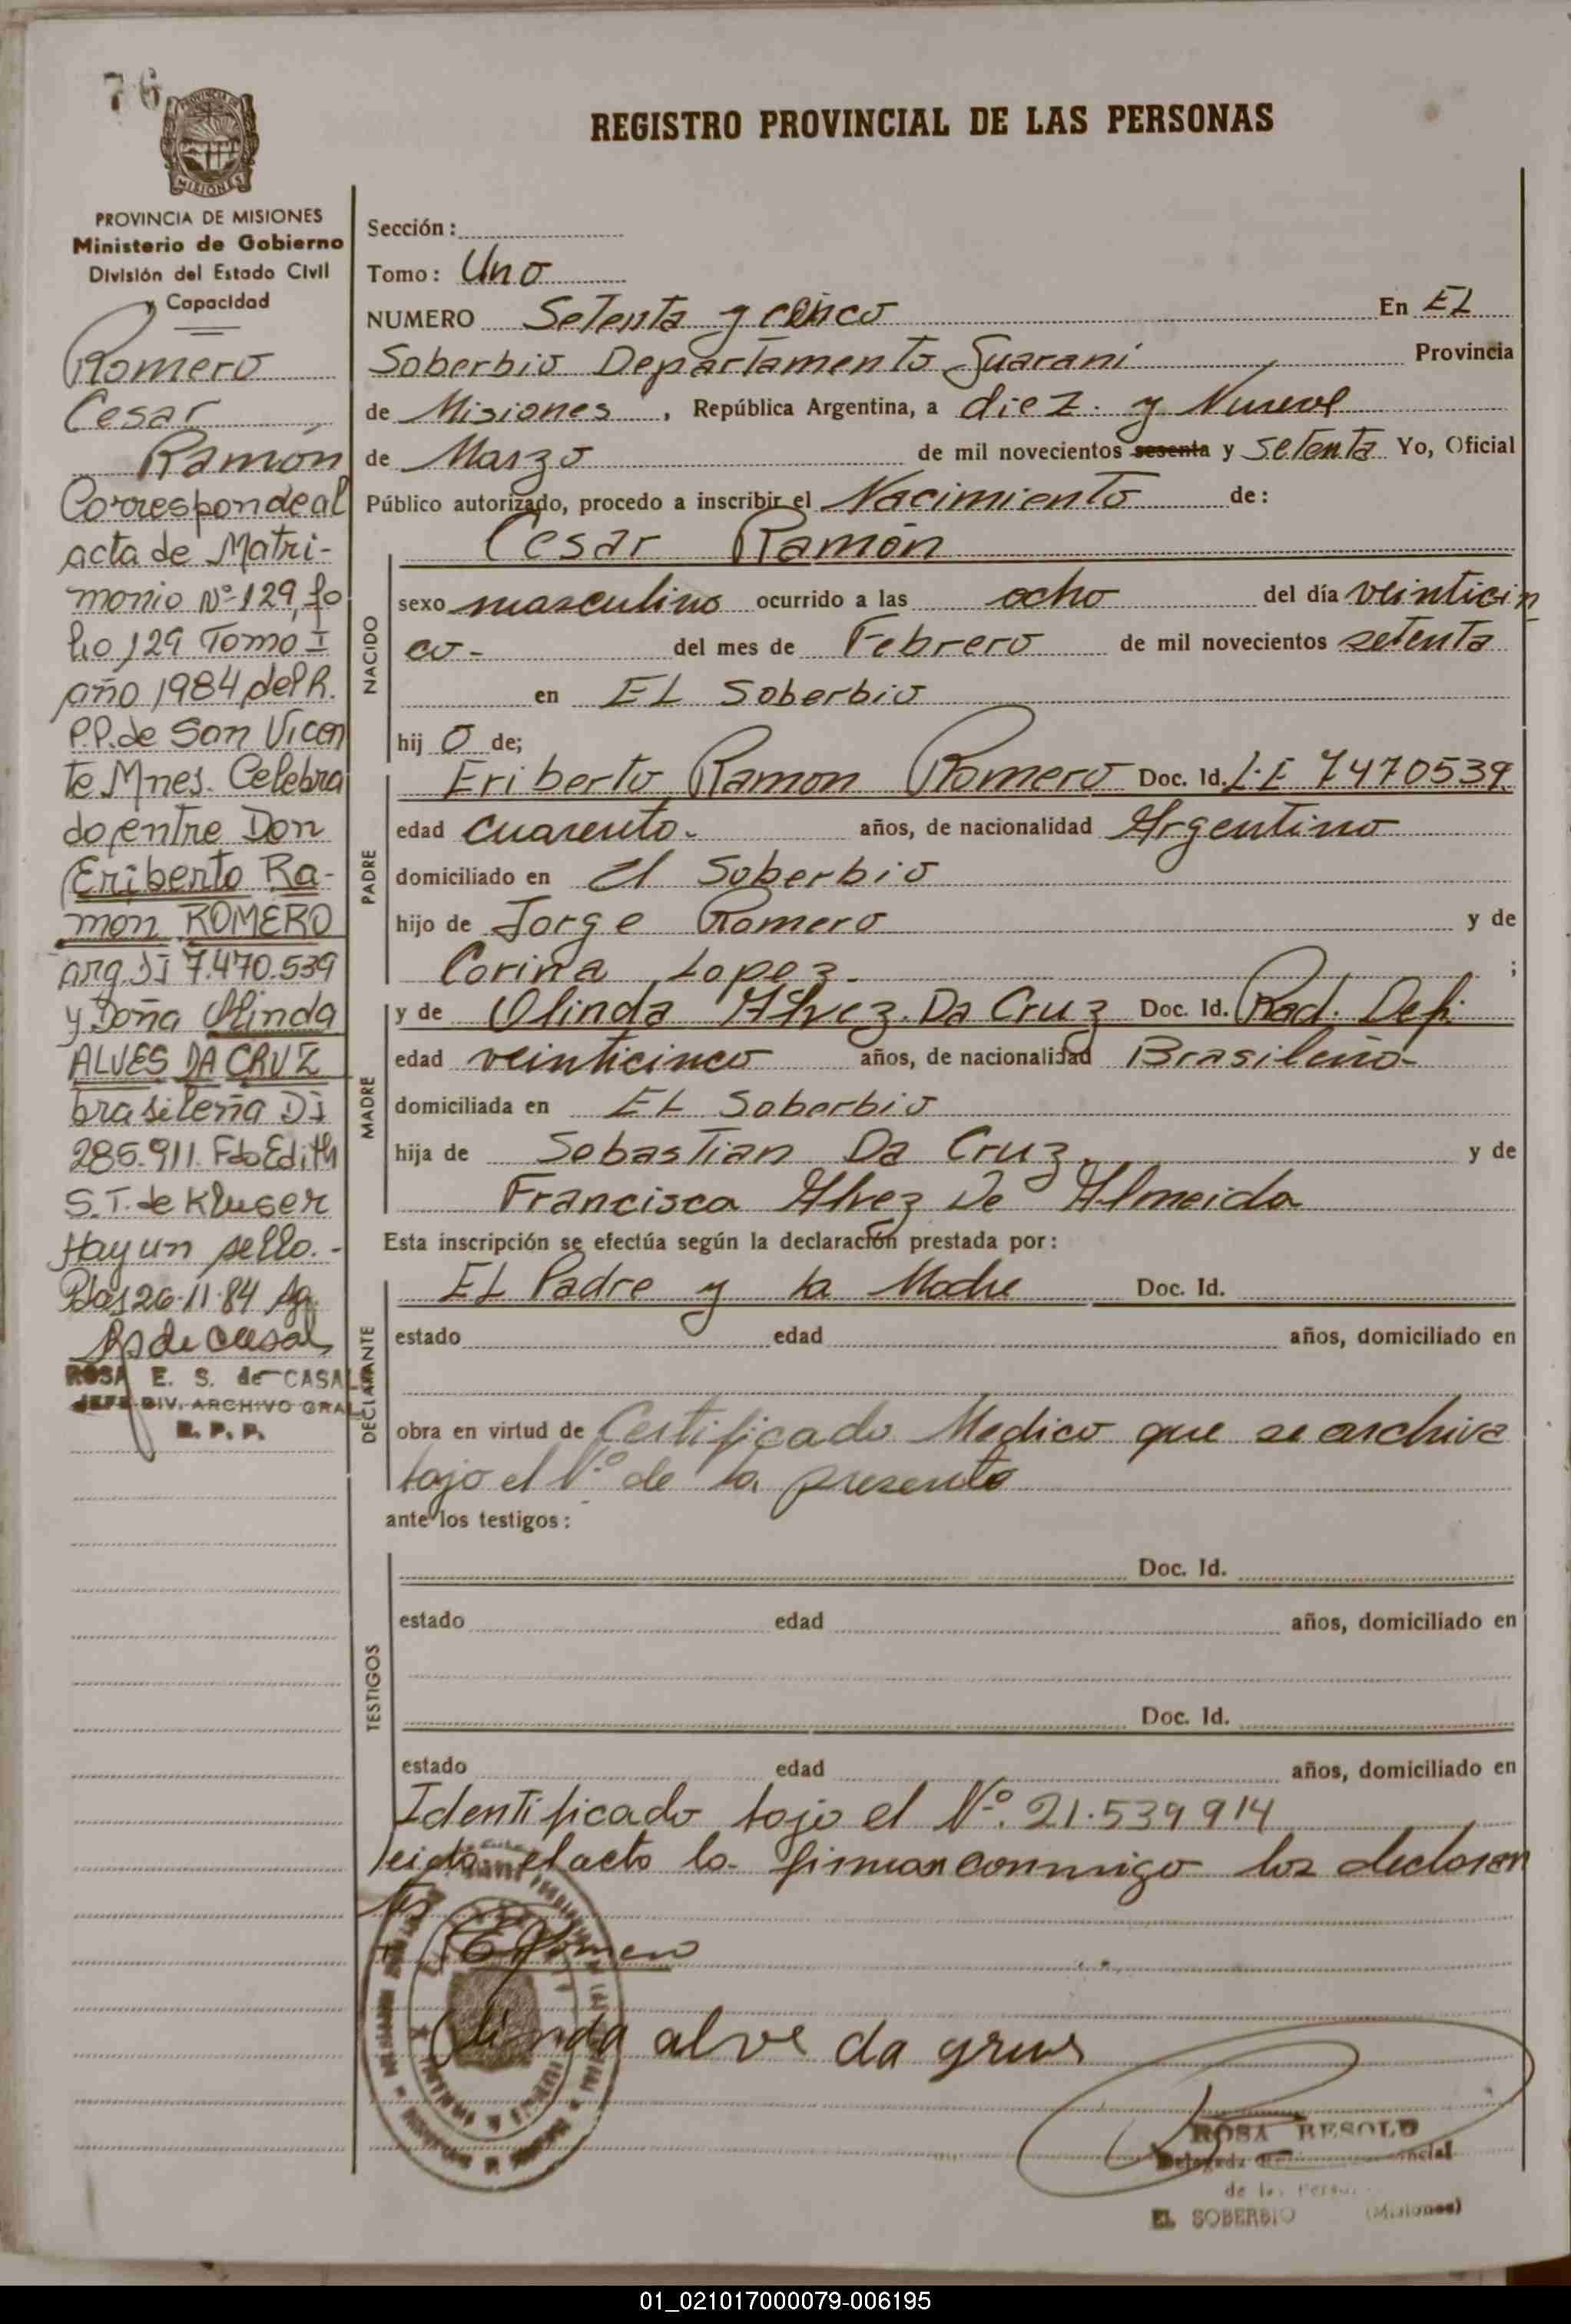 76
REGISTRO PROVINCIAL DE LAS PERSONAS
MISIONES
PROVINCIA DE MISIONES
Ministerio de Gobierno
División del Estado Civil
y Capacidad
Romero
Cesar
Ramón
Corresponde al
acta de Matri-
monio Nº 129, fo
lio 129 Tomo I
año 1984 del R.
P.P. de San Vicen
te Mnes. Celebra
do, entre Don
Eriberto Ra-
mon ROMERO
arg. DI 7.470.539
y Doña Olinda
ALVES DA CRUZ
brasileña DI
285.911. Fdo Edith
S.T. de Kluser
Hay un sello.-
Pdas 26-11-84 Ag.
Rs de Casal
ROSA E. S. de CASAL
JEFE DIV. ARCHIVO GRAL
R. P. P.
Sección:
Tomo: Uno
NUMERO Setenta y cinco En EL
Soberbio Departamento Guarani Provincia
de Misiones, República Argentina, a diez y Nueve
de Marzo de mil novecientos sesenta y setenta Yo, Oficial
Público autorizado, procedo a inscribir el Nacimiento de:
Cesar Ramón
NACIDO
sexo masculino ocurrido a las ocho del día veinticin
co- del mes de Febrero de mil novecientos setenta
en EL Soberbio
hij o de;
PADRE
Eriberto Ramon Romero Doc. Id. L.E 7470539.
edad cuarenta- años, de nacionalidad Argentino
domiciliado en El Soberbio
hijo de Jorge Romero y de
Corina Lopez- ;
MADRE
y de Olinda Alvez Da Cruz Doc. Id. Rad. Def.
edad veinticinco años, de nacionalidad Brasileño-
domiciliada en EL Soberbio
hija de Sebastian Da Cruz. y de
Francisca Alvez De Almeida
Esta inscripción se efectúa según la declaración prestada por:
DECLARANTE
EL Padre y la Madre Doc. Id.
estado edad años, domiciliado en
obra en virtud de Certificado Medico que se archiva
bajo el Nº de la presente
ante los testigos:
TESTIGOS
Doc. Id.
estado edad años, domiciliado en
Doc. Id.
estado edad años, domiciliado en
Identificado bajo el Nº. 21.539914
leida el acta la firman conmigo los declaran
tes
Romero
Olinda alve da grus
ROSA BESOLD
Delegada
de las
EL SOBERBIO (Misiones)
01_021017000079-006195